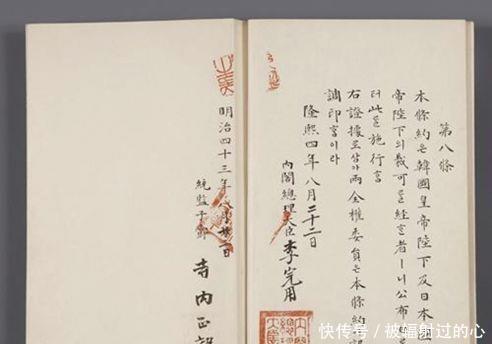 第八條
本條約은韓國皇帝陛下及日本國
帝陛下의裁可를經혼者ㅣ니公布
러此를施行홈
右證據로삼아兩全權委員은本條約에記
調印홈이라
隆熙四年八月二十二日
內閣總理大臣李完用
明治四十三年八月廿二日
統監子爵寺內正毅
快传号/被辐射过的心